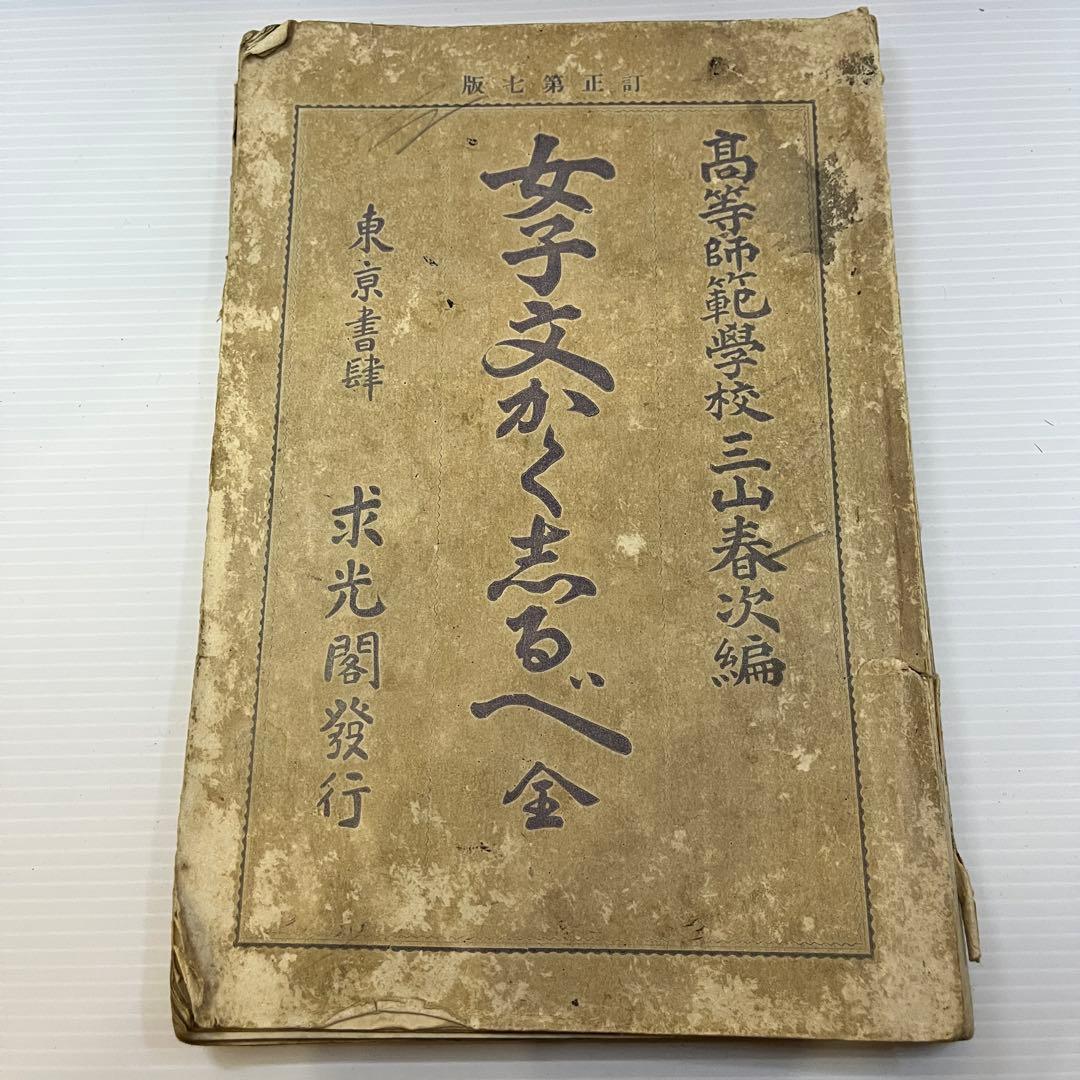 訂正第七版
高等師範學校三山春次編
女子文かく志るべ 全
東京書肆 求光閣發行